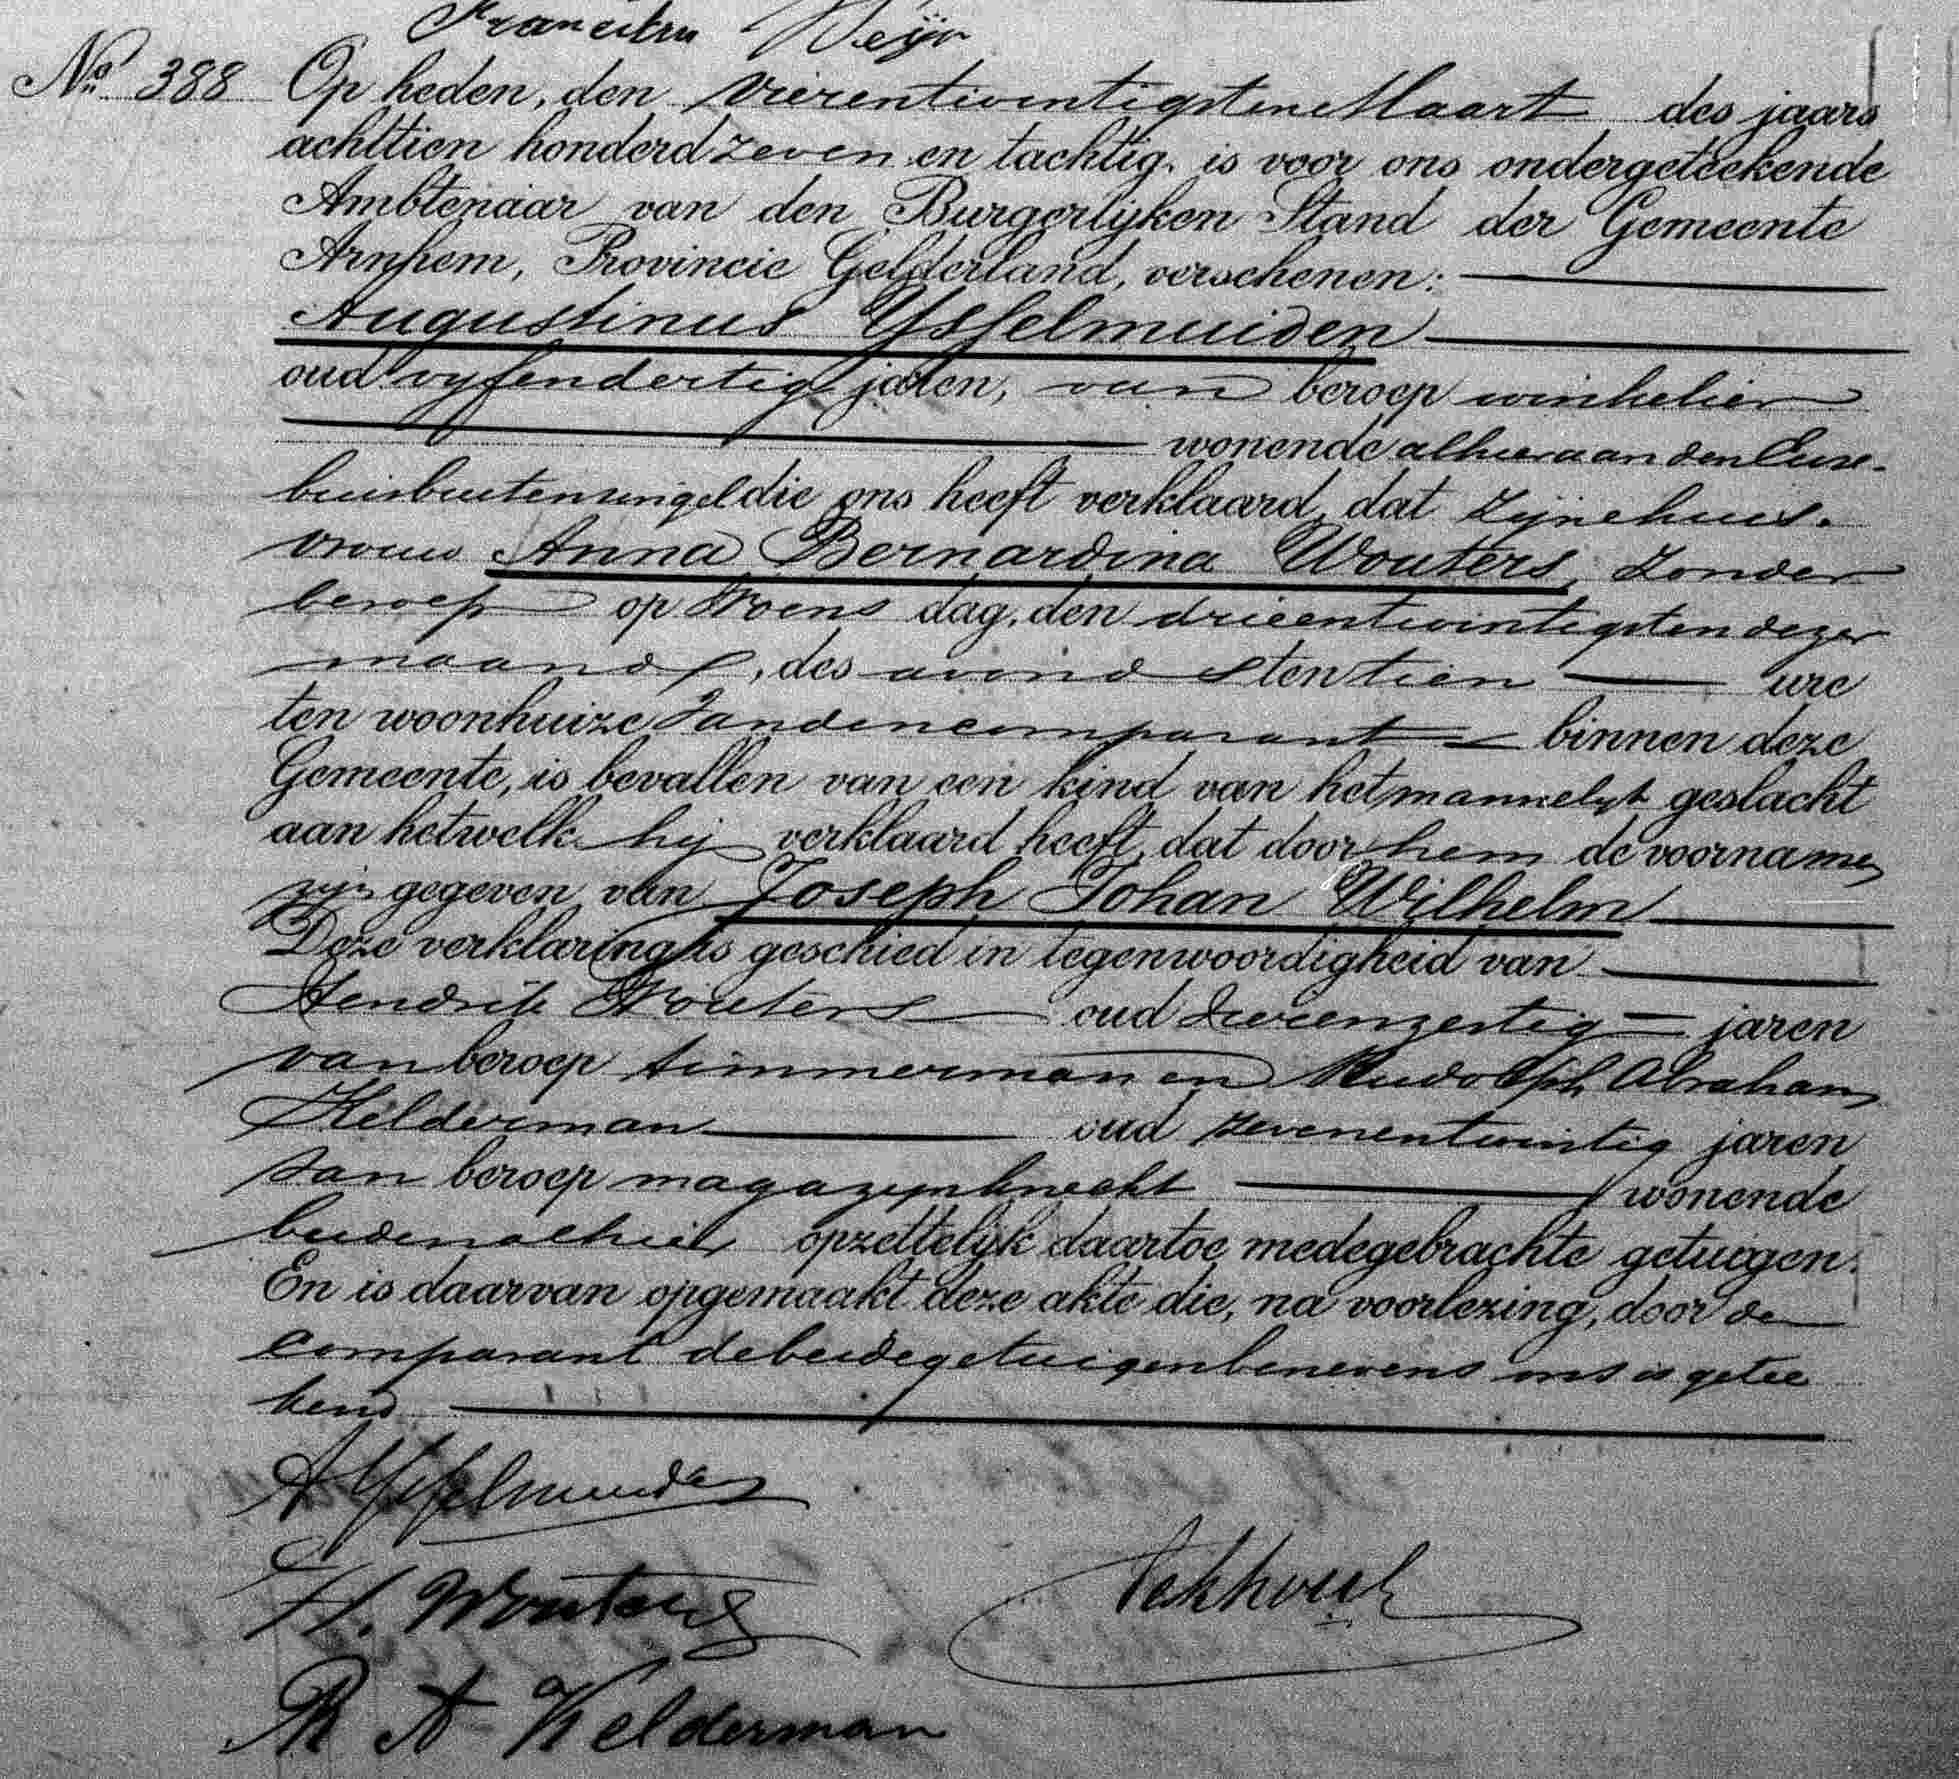 Franciscus Weijn
No. 388 Op heden, den vierentwintigsten Maart des jaars
achttien honderd zeven en tachtig, is voor ons ondergeteekende
Ambtenaar van den Burgerlijken Stand der Gemeente
Arnhem, Provincie Gelderland, verschenen:
Augustinus IJsselmuiden
oud vyfendertig jaren, van beroep winkelier
wonende alhier aan den Euse-
biusbuitensingel die ons heeft verklaard, dat zijne huis-
vrouw Anna Bernardina Wouters, zonder
beroep op Woensdag, den drieentwintigsten dezer
maand, des avonds ten tien ure
ten woonhuize van den comparant binnen deze
Gemeente, is bevallen van een kind van het mannelijk geslacht
aan hetwelk hij verklaard heeft, dat door hem de voornamen
zijn gegeven van Joseph Johan Wilhelm
Deze verklaring is geschied in tegenwoordigheid van
Hendrik Wouters oud jaren
van beroep timmerman en Rudolph Abraham
Kelderman oud zevenentwintig jaren
van beroep magazijnknecht wonende
beiden alhier opzettelijk daartoe medegebrachte getuigen.
En is daarvan opgemaakt deze akte die, na voorlezing, door de
comparant de beide getuigen benevens ons is getee
kend
A IJsselmuiden
H. Wouters
R A Kelderman